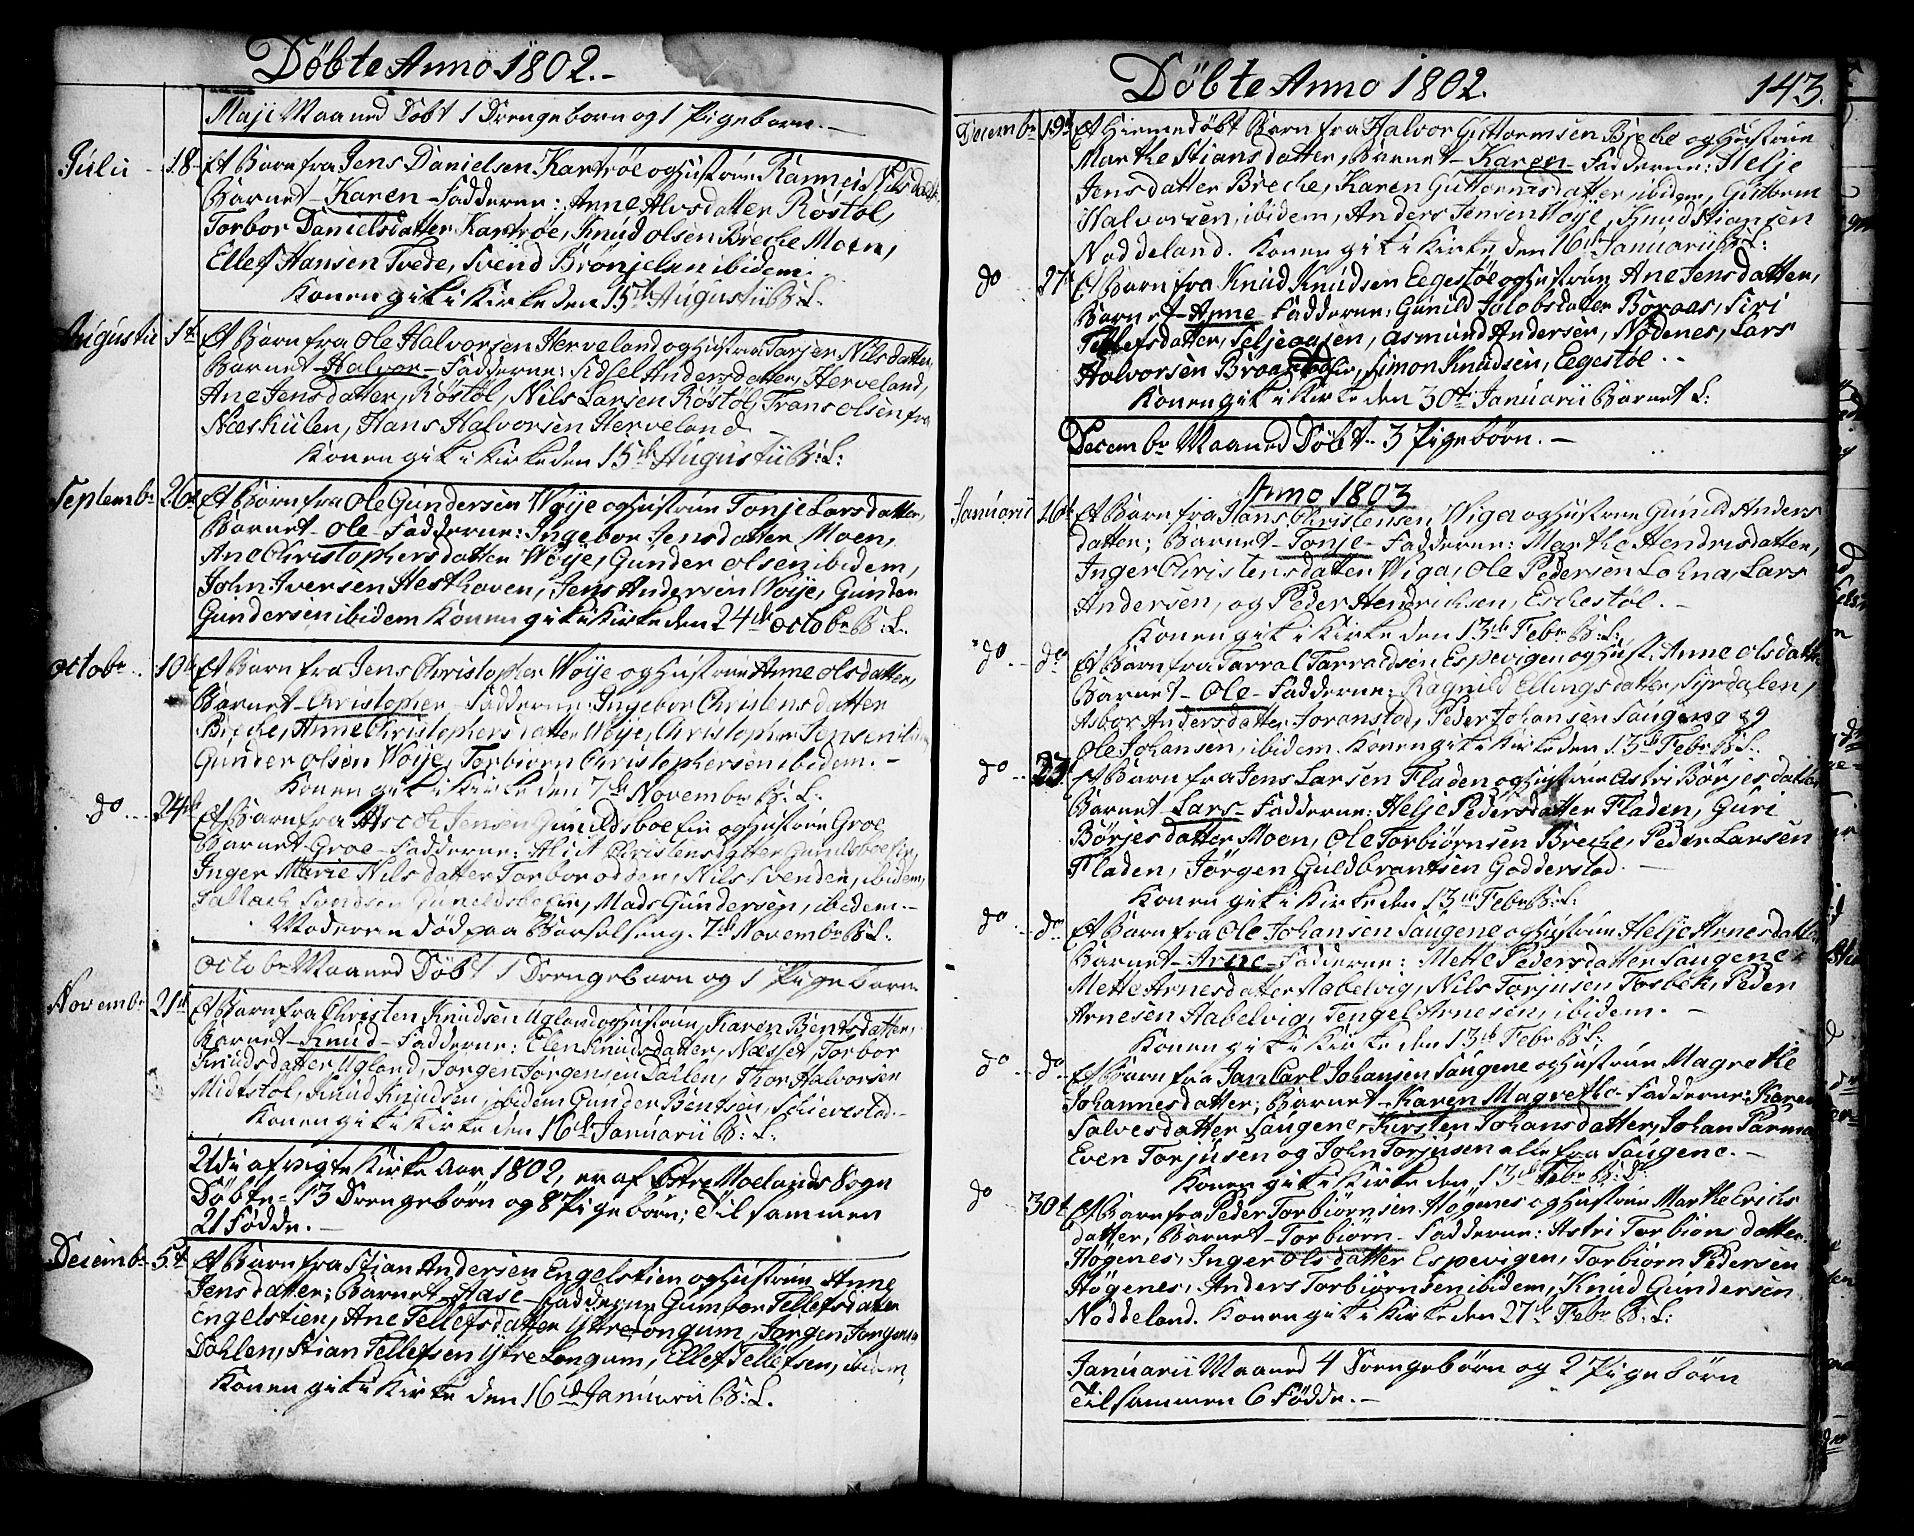 Döbte Anno 1802.-
Maji Maaned Döbt 1 Drengebarn og 1 Pigebarn.-
Julii 18 Et Barn fra Jens Danielsen Kartröe og Hustrue Nilsdatter
Barnet Karen Fadderne: Anne Alvsdatter Röstöl,
Torbor Danielsdatter Kartröe, Knud Olsen Breche Moen,
Ellef Hansen Tvede, Svend Brönjelsen ibidem.
Konen gik i Kirke den 15de Augustii B: L.
Augustii 1te Et Barn fra Ole Halvorsen Herveland og Hustrue Tarjer Nilsdatter,
Barnet Halvor Fadderne: Sidsel Andersdatter, Herveland,
Ane Jensdatter, Röstöl, Nils Larsen Röstöl, Frans Olsen fra
Næskiilen, Hans Halvorsen Herveland
Konen gik i Kirke den 15de Augustii B: L:
Septembr 26de Et Barn fra Ole Gundersen Wöije og Hustrue Tonje Larsdatter,
Barnet Ole Fadderne: Ingebor Jensdatter Moen,
Ane Christophersdatter Wöije, Gunder Olsen ibidem,
John Iversen Hesthaven, Jens Andersen Wöije, Gunder
Gundersen ibidem Konen gik i Kirke den 24de Octobr B: L.
Octobr 10de Et Barn fra Jens Christopher Wöije og Hustrue Anne Olsdatter,
Barnet Christopher Fadderne: Ingebor Christensdatter
Breche, Anne Christophersdatter Wöije, Christopher Jensen ibidem
Gunder Olsen Wöije, Torbiörn Christophersen ibidem.-
Konen gik i Kirke den 7de Novembr B: L:
do 24de Et Barn fra Jensen Gunildsboefie og Hustrue Groe
Barnet Groe Fadderne: Christensdatter
Inger Marie Nilsdatter Torborodden, Nils Svenden, ibidem,
Sallach Svendsen Mads Gundersen, ibidem.-
Moderen död paa Barselseng. 7de Novembr B: L.
Octobr Maaned Döbt 1 Drengebarn og 1 Pigebarn
Novembr 21de Et Barn fra Christen Knudsen Ugland og Hustrue, Karen Bentsdatter,
Barnet Knud Fadderne: Elen Knudsdatter, Næsset, Torbor
Knudsdatter Ugland, Jörgen Jörgensen Dallen, Thor Halvorsen
Midtstöl, Knud Knudsen, ibidem Gunder Bentsen, Schievestad.
Konen gik i Kirke den 16de Januarii B: L.
Udi afvigte Kirke Aar 1802, er af Östre Moelands Sogn
Döbte 13 Drengebörn og 8 Pigebörn; Tilsammen
21 Födde.-
Decembr 5te Et Barn fra Stian Andersen Engelstien og Hustrue, Anne
Jensdatter; Barnet Aase Fadderne Gumbor Tellefsdatter
Engelstien, Ane Tellefsdatter Yttre Longum, Jörgen Jörgensen
Döhlen, Stian Tellefsen Ytre Longum, Ellef Tellefsen, ibidem,
Konen gik i Kirke den 16de Januarii B: L.
Döbte Anno 1802. 143.
Decembr 19de Et Hiemedöbt Barn fra Halvor Guttormsen Breche og Hustrue
Marthe Stiansdatter, Barnet Karen Fadderne: Helje
Jensdatter Breche, Karen Guttormsdatter ibidem, Guttorm
Halvorsen, ibidem, Anders Jensen Wöije, Knud Stiansen
Noddeland. Konen gik i Kirke den 16de Januarii B: L:
do 27de Et Barn fra Knud Knudsen Eegestöe og Hustrue Ane Jensdatter,
Barnet Anne Fadderne: Gunild Jacobsdatter Boraas, Siri
Tellefsdatter, Seljeaasen, Asmund Andersen, Nödenes, Lars
Halvorsen Simon Knudsen, Eegestöe
Konen gik i Kirke den 30te Januarii Barnet L:
Decembr Maaned Döbt 3 Pigebörn.-
Anno 1803
Januarii 16de Et Barn fra Hans Christensen Wiga og Hustrue Gunild Anders
datter; Barnet Tonje Fadderne: Marthe Hendrisdatter,
Inger Christensdatter Wiga, Ole Pedersen Lohna, Lars
Andersen, og Peder Hendrichsen, Eschestöl.-
Konen gik i Kirke den 13de Febr B: L:
do do Et Barn fra Tarral Tarraldsen Espevigen og Hust: Anne Olsdatter
Barnet Ole Fadderne: Ragnild Ellingsdatter, Syrdalen,
Asbor Andersdatter Joranstad, Peder Johansen Saugene og
Ole Johansen, ibidem. Konen gik i Kirke den 13de Febr B: L:
do 23. Et Barn fra Jens Larsen Fladen og Hustrue Astri Börjesdatter
Barnet Lars Fadderne: Helje Pedersdatter Fladen, Guri
Börjesdatter Moen, Ole Torbiörnsen Breche, Peder Larsen
Fladen, Jörgen Guldbrantsen Godderstad.
Konen gik i Kirke den 13de Febr B: L:
do do Et Barn fra Ole Johansen Saugene og Hustrue Helje Arnesdatter
Barnet Arne Fadderne: Mette Pedersdatter Saugene
Mette Arnesdatter Habelvig, Nils Torjusen Torsbek, Peder
Arnesen Habelvig, Tengel Arnesen, ibidem.-
Konen gik i Kirke den 13de Febr B: L:
do do Et Barn fra Jan Carl Johansen Saugene og Hustrue Magrethe
Johannesdatter; Barnet Karen Magrethe Fadderne: Karen
Salvesdatter Saugene, Kirsten Johansdatter, Johan Parma
Even Torjusen og John Torjusen alle fra Saugene.-
Konen gik i Kirke den 13de Febr B: L:
do 30te Et Barn fra Peder Torbiörnsen Högenes og Hustrue Marthe Erichs
datter, Barnet Torbiörn Fadderne: Astri Torbiörnsdatter
Högenes, Inger Olsdatter Espevigen, Torbiörn Pedersen
Högenes, Anders Torbiörnsen ibidem, Knud Gundersen
Noddeland. Konen gik i Kirke den 27de Febr B: L:
Januarii Maaned 4 Drengebörn og 2 Pigebörn
Tilsammen 6 Födde.-